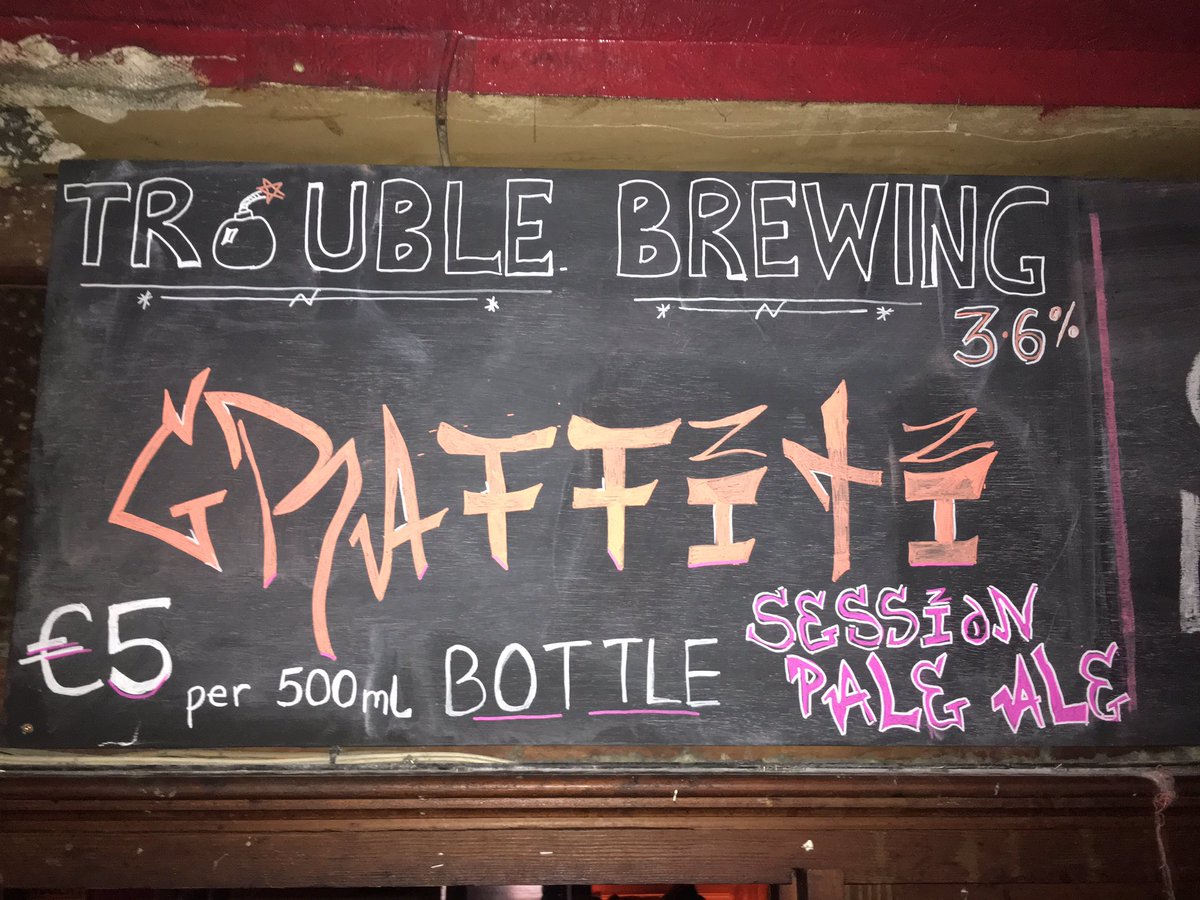 TROUBLE BREWING
3.6%
GRAFFITI
€5 per 500mL BOTTLE
SESSION
PALE ALE